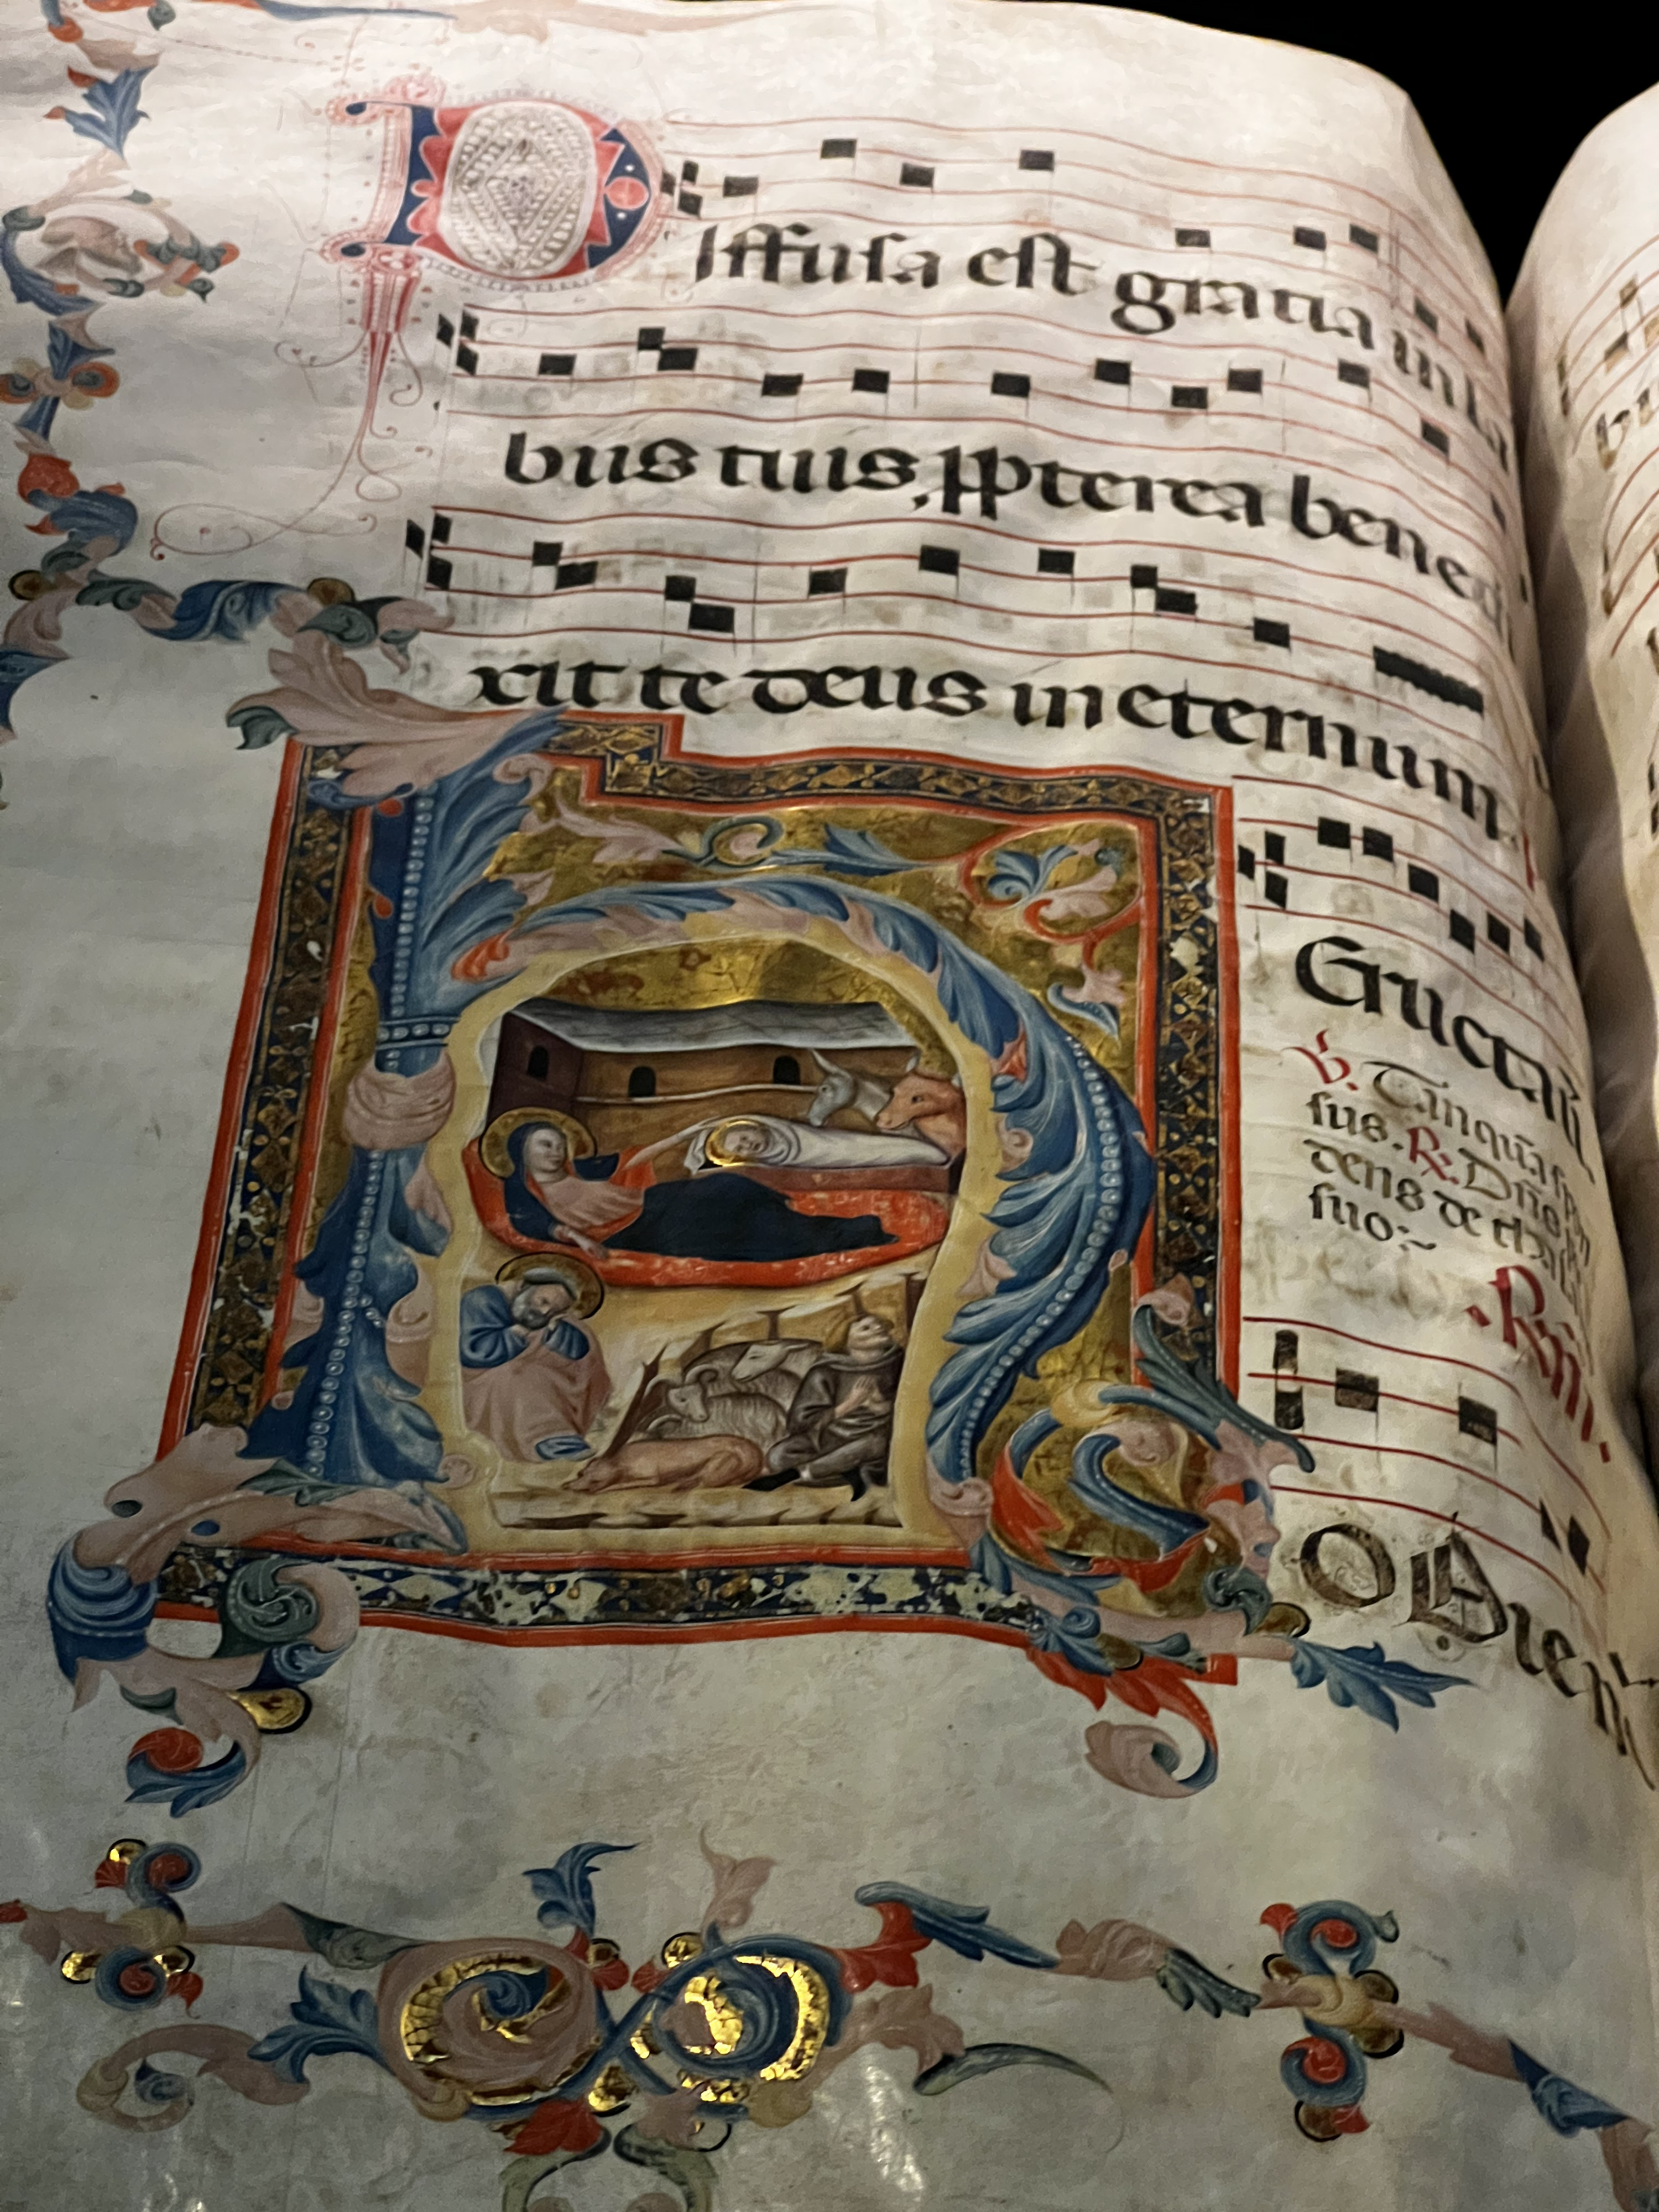 Diffusa est gratia in la
bus tuis, ppterea bened
xit te deus in eternum.
Eructaũ
℣. Tanqua spon
sus. ℟. Dñs p
dens de thal
suo:~
H odie